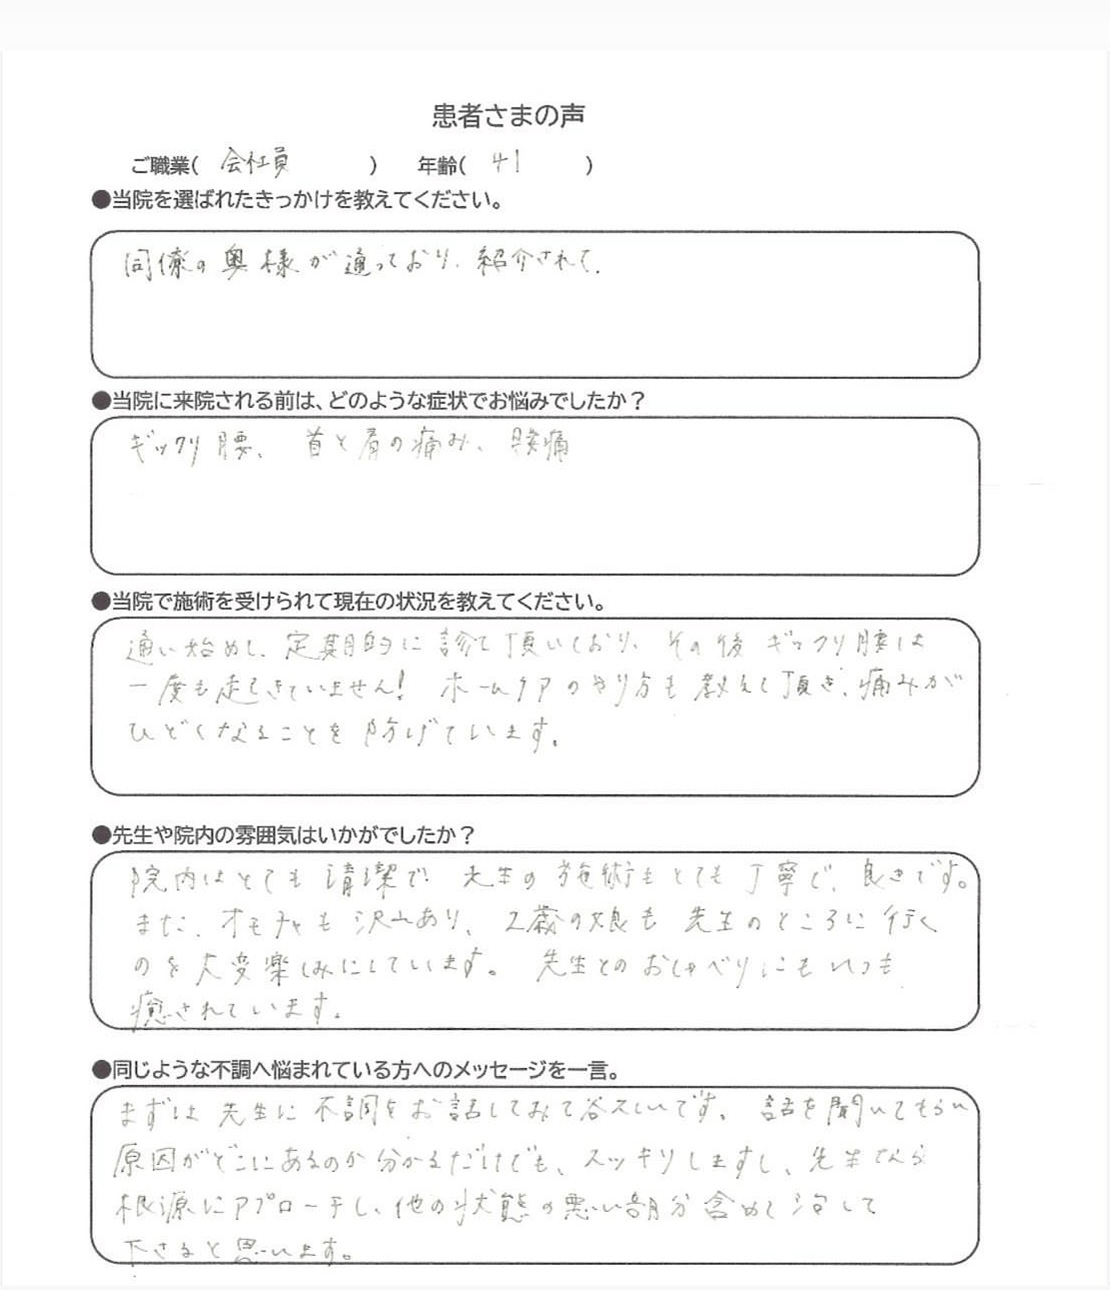 患者さまの声
ご職業( 会社員 ) 年齢( 41 )
●当院を選ばれたきっかけを教えてください。
同僚の奥様が通っており、紹介されて。
●当院に来院される前は、どのような症状でお悩みでしたか？
ギックリ腰、首と肩の痛み、腰痛
●当院で施術を受けられて現在の状況を教えてください。
通い始めて、定期的に診て頂いており、その後ギックリ腰は
一度も起きていません! ホームケアのやり方も教えて頂き、痛みが
ひどくなることを防げています。
●先生や院内の雰囲気はいかがでしたか？
院内はとても清潔で、先生の施術もとても丁寧で、良きです。
また、オモチャも沢山あり、2歳の娘も先生のところに行く
のを大変楽しみにしています。先生とのおしゃべりにもいつも
癒されています。
●同じような不調へ悩まれている方へのメッセージを一言。
まずは先生に不調をお話してみて欲しいです。話を聞いてもらい
原因がどこにあるのか分かるだけでも、スッキリしますし、先生なら
根源にアプローチし、他の状態の悪い部分含めて治して
下さると思います。